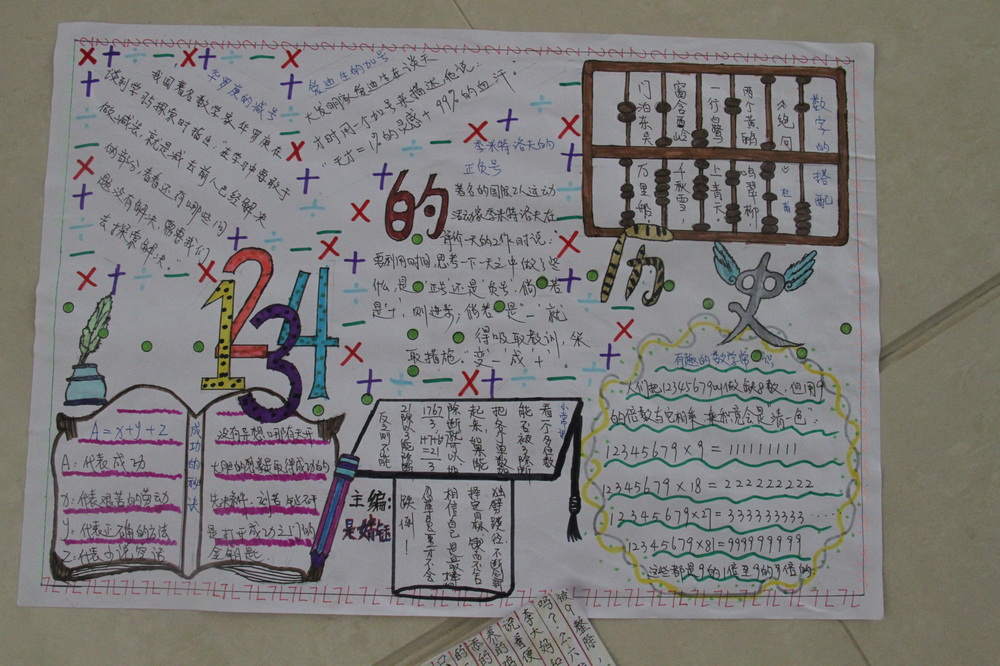 华罗庚的减号
我国著名数学家华罗庚在
谈到学习探索时指出:在学习中要敢于
做减法,就是减去前人已经解决
的部分,看看还有哪些问
题没有解决,需要我们
去探索解决。"
爱迪生的加号
大发明家爱迪生在谈天
才时用一个加号来描述,他说:
"天才=1%的灵感+99%的血汗。"
季米特洛夫的
正负号
著名的国际工人运动
活动家季米特洛夫在
评价一天的工作时说:
要利用时间,思考一下一天之中做了些
什么,是"正号"还是"负号"倘若
是"+",则进步;倘若是"-",就
得吸取教训,采
取措施。"变"-"成"+"
数字的搭配
绝句
杜甫
两个黄鹂鸣翠柳,
一行白鹭上青天。
窗含西岭千秋雪,
门泊东吴万里船。
1234
的
历
史
成功的秘诀
A=x+y+z
A:代表成功
x:代表艰苦的劳动
y:代表正确的方法
Z:代表少说空话
没有异想哪有天开
大胆的思索是取得成功的
先决条件,刻苦钻研
是打开成功之门的
金钥匙
小常识
看一个多位数
能否被3除断
把各个单数加
起来,如果能
除断就可以
1767
3
1+7+6+7
=21
21
3
除以3能除断
反之则不能
主编:
独辟蹊径,不断创新
择定目标,锲而不舍
相信自己是最棒的
跌倒!
有趣的数学常识
人们把12345679叫做缺8数,但用9
的倍数与它相乘,乘积竟会是清一色"
12345679×9=111111111
12345679×18=222222222
12345679×27=333333333……
12345679×81=999999999
这些都是9的1倍至9的9倍的
被9整除,